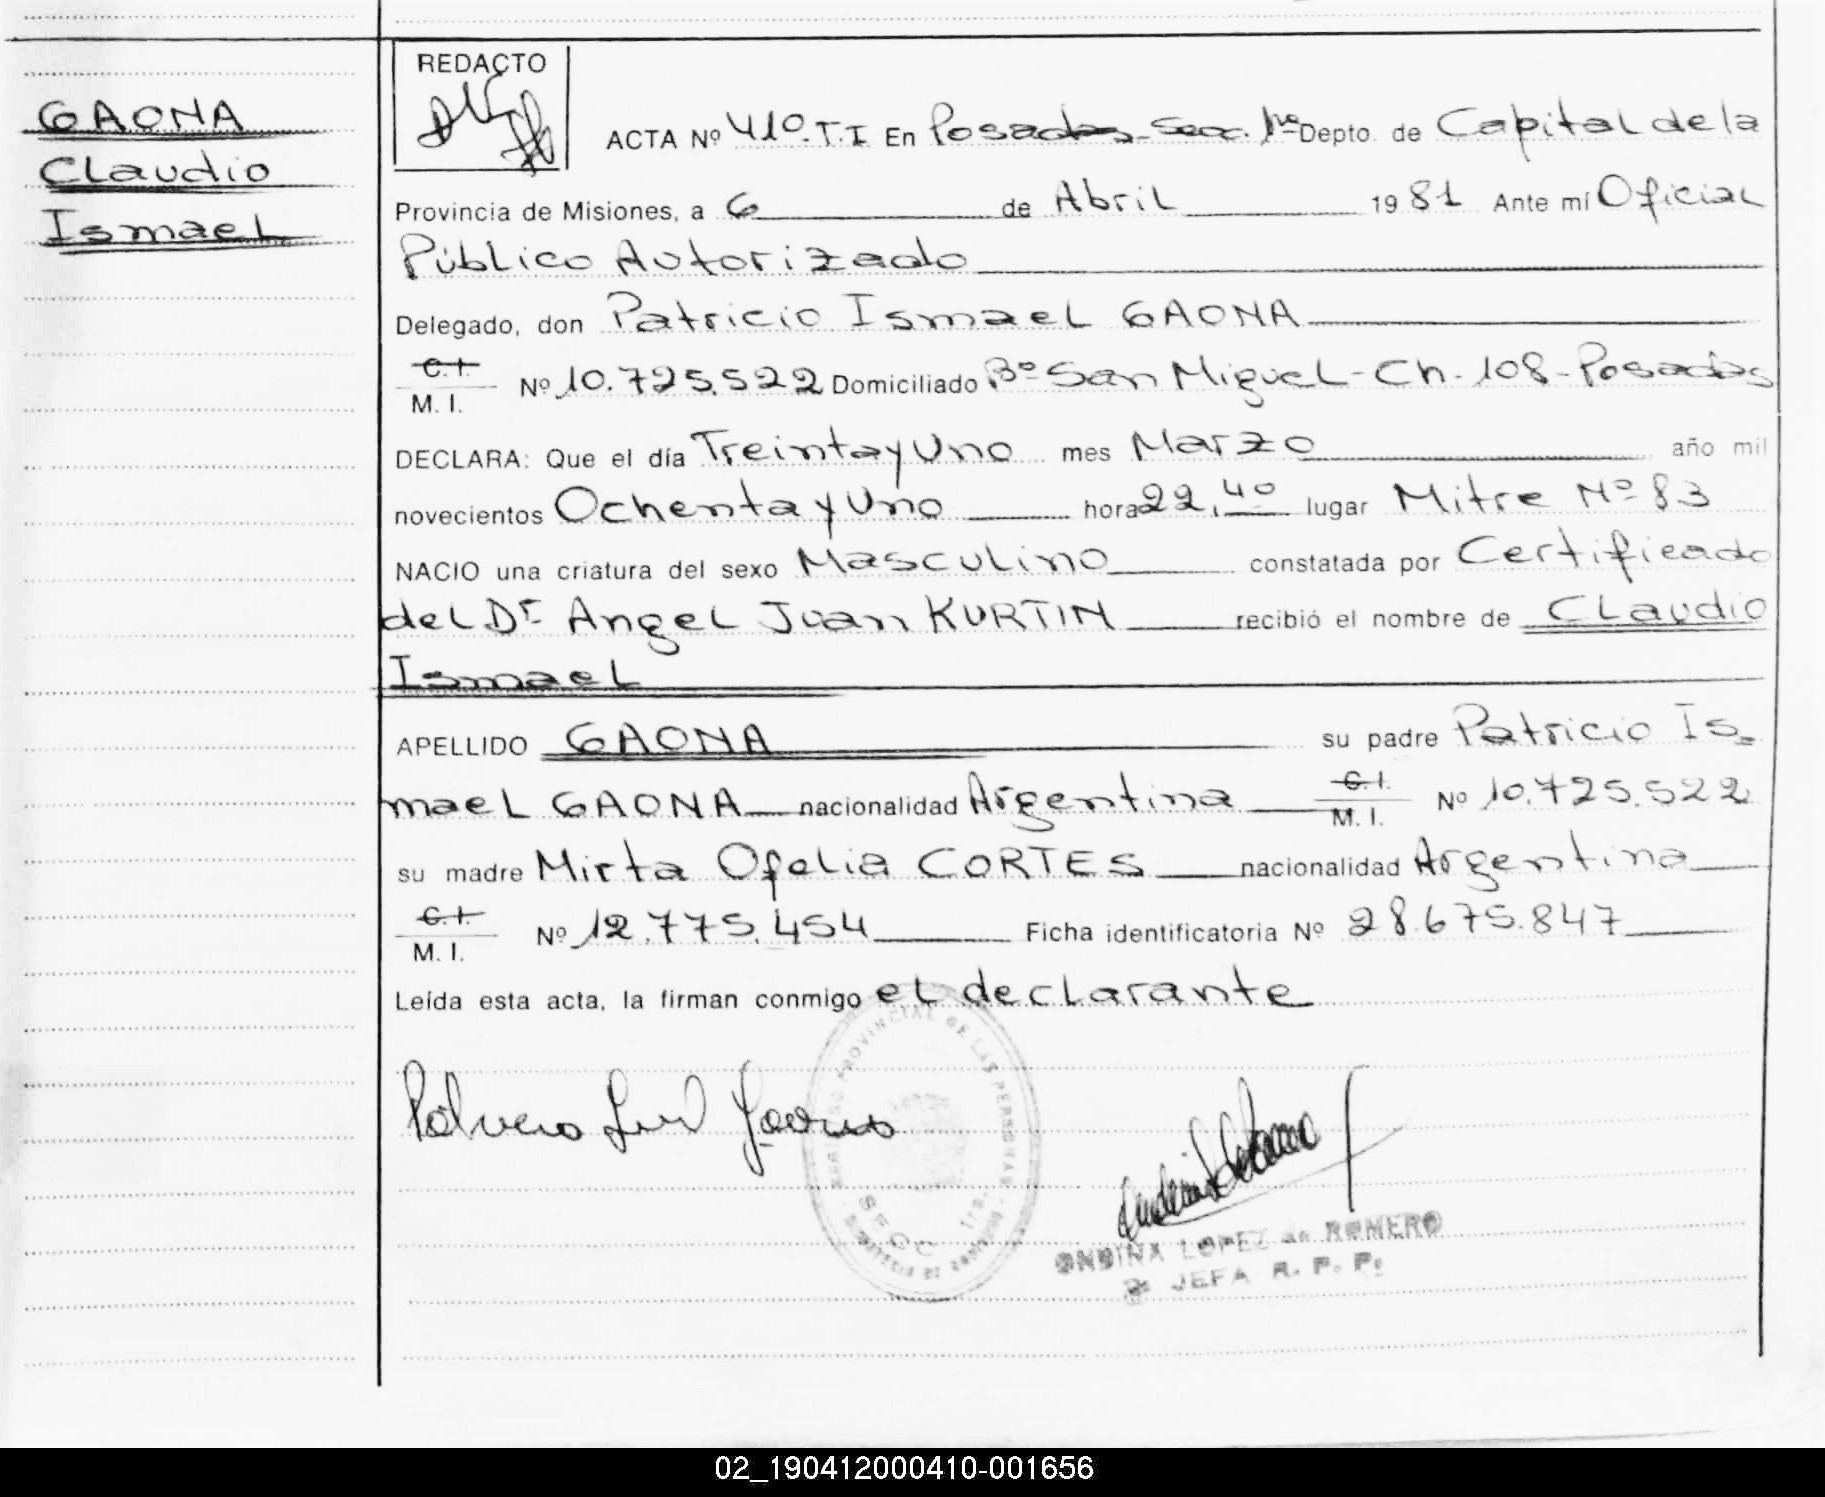 GAONA
Claudio
Ismael
REDACTO
ACTA Nº 410.T.I En Posadas-Secc. 1ra Depto. de Capital de la
Provincia de Misiones, a 6 de Abril 1981 Ante mí Oficial
Público Autorizado
Delegado, don Patricio Ismael GAONA
C.I.
M.I. Nº 10.725.522 Domiciliado Bº San Miguel-Ch-108-Posadas
DECLARA: Que el día Treinta y Uno mes Marzo año mil
novecientos Ochenta y Uno hora 22,40 lugar Mitre Nº 83
NACIO una criatura del sexo Masculino constatada por Certificado
del Dr Angel Juan KURTIN recibió el nombre de Claudio
Ismael
APELLIDO GAONA su padre Patricio Is-
mael GAONA nacionalidad Argentina C.I. M.I. Nº 10.725.522
su madre Mirta Ofelia CORTES nacionalidad Argentina
C.I.
M.I. Nº 12.775.454 Ficha identificatoria Nº 28.675.847
Leída esta acta, la firman conmigo el declarante
PROVINCIAL DE LAS PERSONAS
SECC. 1ra.
ONDINA LOPEZ de ROMERO
JEFA R. P. P.
02_190412000410-001656